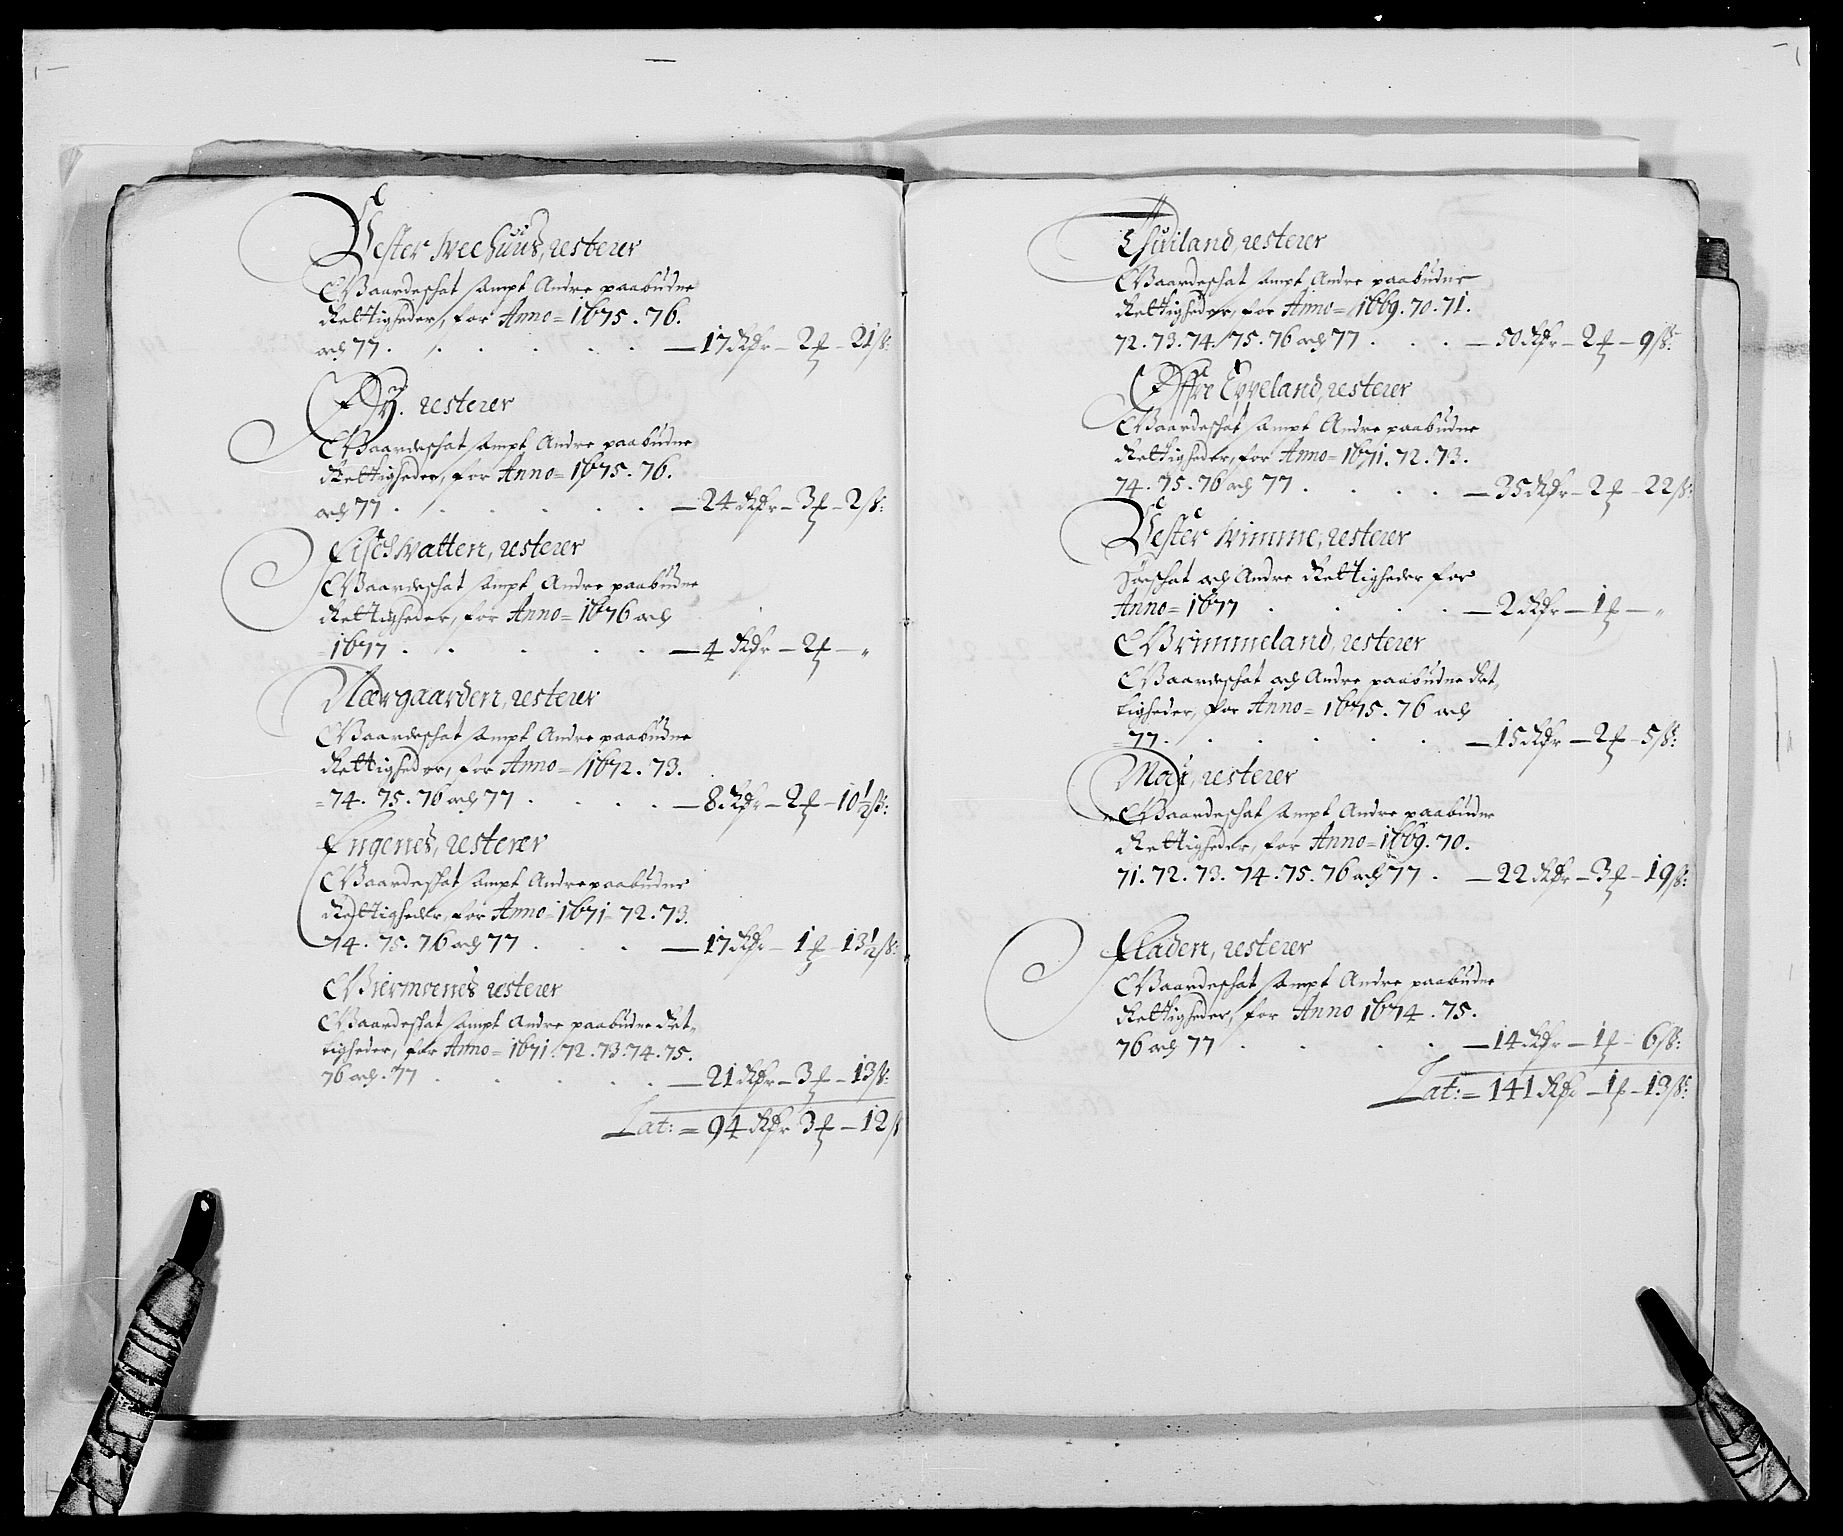 Vester Weehuus, resterer
Gaardeschat sampt Andre paabudne
Rettigheder, for Anno = 1675. 76.
och 77 . . . . . . — 17 Rdr — 2 f — 21 ſs:
By. resterer
Gaardeschat sampt Andre paabudne
Rettigheder, for Anno = 1675. 76.
och 77 . . . . . . — 24 Rdr — 3 f — 2 ſs:
Fischvatten, resterer
Gaardeschat sampt Andre paabudne
Rettigheder, for Anno = 1676 och
= 1677 . . . . . . — 4 Rdr — 2 f — „
Nærgaarden, resterer
Gaardeschat sampt Andre paabudne
Rettigheder, for Anno = 1672. 73.
= 74. 75. 76 och 77 . . . . — 8 Rdr — 2 f — 10 1/2 ſs:
Engenes, resterer
Gaardeschat sampt Andre paabudne
Rettigheder, for Anno = 1671 = 72. 73.
74. 75. 76 och 77 . . . — 17 Rdr — 1 f — 13 1/2 ſs:
Giermoenes resterer
Gaardeschat sampt Andre paabudne Ret,
tigheder, for Anno = 1671. 72. 73. 74. 75.
76 och. 77 . . . . . — 21 Rdr — 3 f — 13 ſs:
Lat: = 94 Rdr 3 f — 12 ſs
Gaardeschat sampt Andre paabudne
Rettigheder, for Anno = 1669. 70. 71.
72. 73. 74. 75. 76 och 77 . . . — 50 Rdr — 2 f — 9 ſs:
Øfre Eppeland, resterer
Gaardeschat sampt Andre paabudne
Rettigheder, for Anno = 1671. 72. 73.
74. 75. 76 och 77 . . . . — 35 Rdr — 2 f — 22 ſs:
Vester Wimme, resterer
schat och Andre Rettigheder for
Anno = 1677 . . . . — 2 Rdr — 1 f — „
Grimmeland, resterer
Gaardeschat och Andre paabudne Ret,
tigheder, for Anno = 1675. 76 och
= 77 . . . . . . — 15 Rdr — 2 f — 5 ſs:
Moy, resterer
Gaardeschat sampt Andre paabudne
Rettigheder, for Anno = 1669. 70.
71. 72. 73. 74. 75. 76 och 77 . — 22 Rdr — 3 f — 19 ſs:
Fladen, resterer
Gaardeschat sampt Andre paabudne
Rettigheder, for Anno 1674. 75.
76 och 77 . . . . . — 14 Rdr — 1 f — 6 ſs:
Lat: = 141 Rdr — 1 f — 13 ſs: